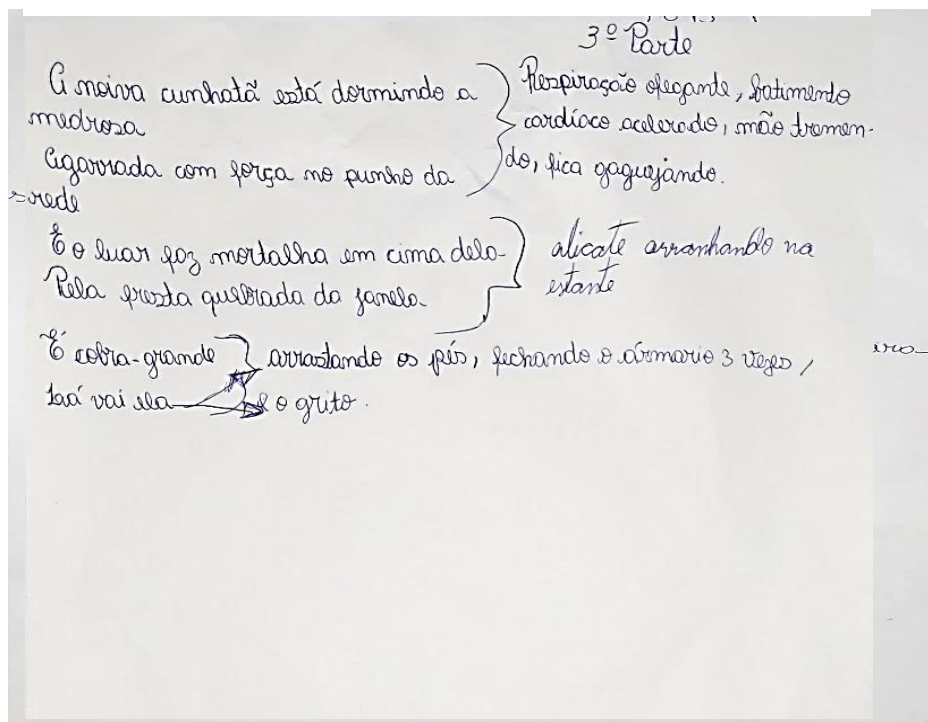 3º Parte
A noiva cunhatã está dormindo a
medrosa
Agarrada com força no punho da
rede
E o luar faz mortalha em cima dela
Pela fresta quebrada da janela
É cobra-grande
Lá vai ela
Respiração ofegante, batimento
cardíaco acelerado, mão tremen-
do, fica gaguejándo.
alicate arranhando na
estante
arrastando os pés, fechando o ármario 3 vezes,
e o grito.